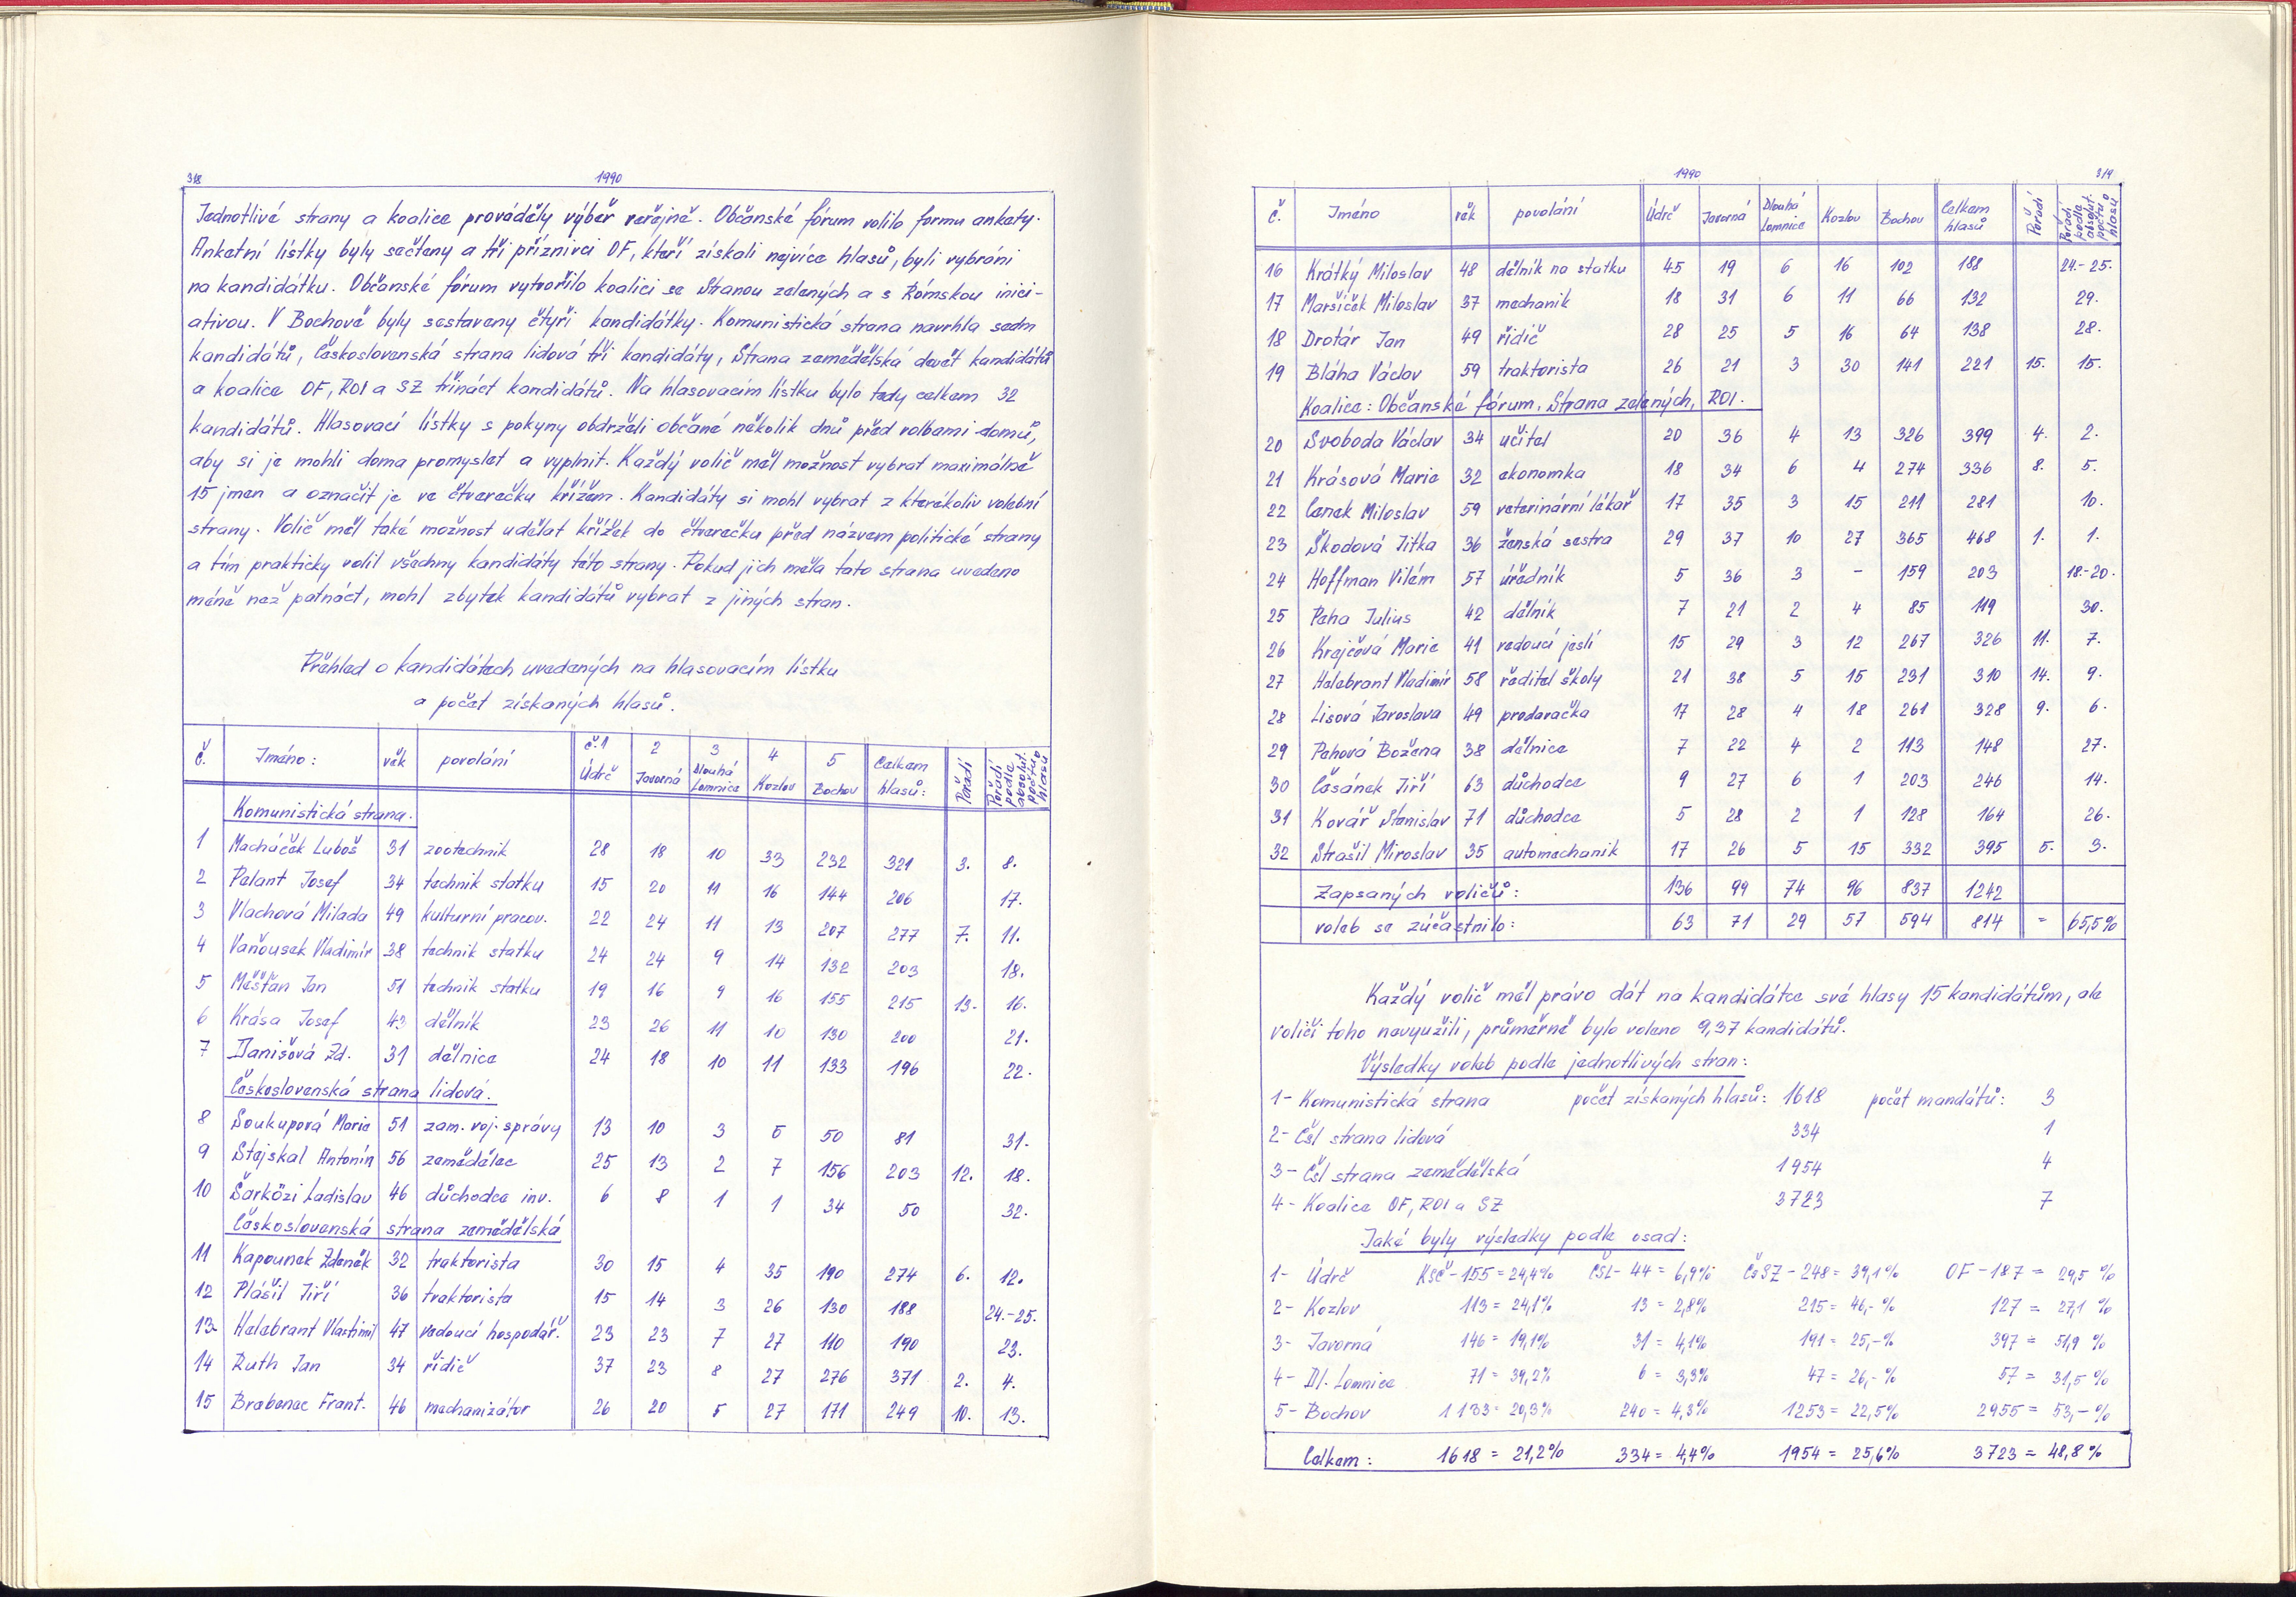 318
1990
Jednotlivé strany a koalice prováděly výběr veřejně. Občanské fórum volilo formu ankety.
Anketní lístky byly sečteny a tři příznivci OF, kteří získali nejvíce hlasů, byli vybráni
na kandidátku. Občanské fórum vytvořilo koalici se Stranou zelených a s Rómskou inici-
ativou. V Bochově byly sestaveny čtyři kandidátky. Komunistická strana navrhla sedm
kandidátů, Československá strana lidová tři kandidáty, Strana zemědělská devět kandidátů
a koalice OF, ROI a SZ třináct kandidátů. Na hlasovacím lístku bylo tedy celkem 32
kandidátů. Hlasovací lístky s pokyny obdrželi občané několik dnů před volbami domů,
aby si je mohli doma promyslet a vyplnit. Každý volič měl možnost vybrat maximálně
15 jmen a označit je ve čtverečku křížem. Kandidáty si mohl vybrat z kterékoliv volební
strany. Volič měl také možnost udělat křížek do čtverečku před názvem politické strany
a tím prakticky volil všechny kandidáty této strany. Pokud jich měla tato strana uvedeno
méně než patnáct, mohl zbytek kandidátů vybrat z jiných stran.
Přehled o kandidátech uvedených na hlasovacím lístku
a počet získaných hlasů.
Č. Jméno: věk povolání č.1 Údrč 2 Javorná 3 Dlouhá Lomnice 4 Kozlov 5 Bochov Celkem hlasů: Pořadí Pořadí podle absolut. počtu hlasů
Komunistická strana.
1 Macháček Luboš 31 zootechnik 28 18 10 33 232 321 3. 8.
2 Pelant Josef 34 technik statku 15 20 11 16 144 206 17.
3 Vlachová Milada 49 kulturní pracov. 22 24 11 13 207 277 7. 11.
4 Vaňousek Vladimír 38 technik statku 24 24 9 14 132 203 18.
5 Měšťan Jan 51 technik statku 19 16 9 16 155 215 13. 16.
6 Krása Josef 43 dělník 23 26 11 10 130 200 21.
7 Danišová Zd. 31 dělnice 24 18 10 11 133 196 22.
Československá strana lidová.
8 Soukupová Marie 51 zam. voj. správy 13 10 3 5 50 81 31.
9 Stejskal Antonín 56 zemědělec 25 13 2 7 156 203 12. 18.
10 Šarközi Ladislav 46 důchodce inv. 6 8 1 1 34 50 32.
Československá strana zemědělská
11 Kapounek Zdeněk 32 traktorista 30 15 4 35 190 274 6. 12.
12 Plášil Jiří 36 traktorista 15 14 3 26 130 188 24.-25.
13 Halabrant Vlastimil 47 vedoucí hospodář. 23 23 7 27 110 190 23.
14 Ruth Jan 34 řidič 37 23 8 27 276 371 2. 4.
15 Brabenec Frant. 46 mechanizátor 26 20 5 27 171 249 10. 13.
1990
319
Č. Jméno věk povolání Údrč Javorná Dlouhá Lomnice Kozlov Bochov Celkem hlasů Pořadí Pořadí podle absolut. počtu hlasů
16 Krátký Miloslav 48 dělník na statku 45 19 6 16 102 188 24.-25.
17 Maršíček Miloslav 37 mechanik 18 31 6 11 66 132 29.
18 Drotár Jan 49 řidič 28 25 5 16 64 138 28.
19 Bláha Václav 59 traktorista 26 21 3 30 141 221 15. 15.
Koalice: Občanské fórum, Strana zelených, ROI.
20 Svoboda Václav 34 učitel 20 36 4 13 326 399 4. 2.
21 Krásová Marie 32 ekonomka 18 34 6 4 274 336 8. 5.
22 Cenek Miloslav 59 veterinární lékař 17 35 3 15 211 281 10.
23 Škodová Jitka 36 ženská sestra 29 37 10 27 365 468 1. 1.
24 Hoffman Vilém 57 úředník 5 36 3 - 159 203 18.-20.
25 Peha Julius 42 dělník 7 21 2 4 85 119 30.
26 Krejčová Marie 41 vedoucí jeslí 15 29 3 12 267 326 11. 7.
27 Halabrant Vladimír 58 ředitel školy 21 38 5 15 231 310 14. 9.
28 Lisová Jaroslava 49 prodavačka 17 28 4 18 261 328 9. 6.
29 Pehová Božena 38 dělnice 7 22 4 2 113 148 27.
30 Časánek Jiří 63 důchodce 9 27 6 1 203 246 14.
31 Kovář Stanislav 71 důchodce 5 28 2 1 128 164 26.
32 Strašil Miroslav 35 automechanik 17 26 5 15 332 395 5. 3.
Zapsaných voličů: 136 99 74 96 837 1242
voleb se zúčastnilo: 63 71 29 57 594 814 = 65,5%
Každý volič měl právo dát na kandidátce své hlasy 15 kandidátům, ale
voliči toho nevyužili, průměrně bylo voleno 9,37 kandidátů.
Výsledky voleb podle jednotlivých stran:
1- Komunistická strana počet získaných hlasů: 1618 počet mandátů: 3
2- Čsl strana lidová 334 1
3- Čsl strana zemědělská 1954 4
4- Koalice OF, ROI a SZ 3723 7
Jaké byly výsledky podle osad:
1- Údrč KSČ-155=24,4% ČSL-44=6,9% ČsSZ-248=39,1% OF-187=29,5%
2- Kozlov 113=24,1% 13=2,8% 215=46,-% 127=27,1%
3- Javorná 146=19,1% 31=4,1% 191=25,-% 397=51,9%
4- Dl. Lomnice 71=39,2% 6=3,3% 47=26,-% 57=31,5%
5- Bochov 1133=20,3% 240=4,3% 1253=22,5% 2955=53,-%
Celkem: 1618=21,2% 334=4,4% 1954=25,6% 3723=48,8%